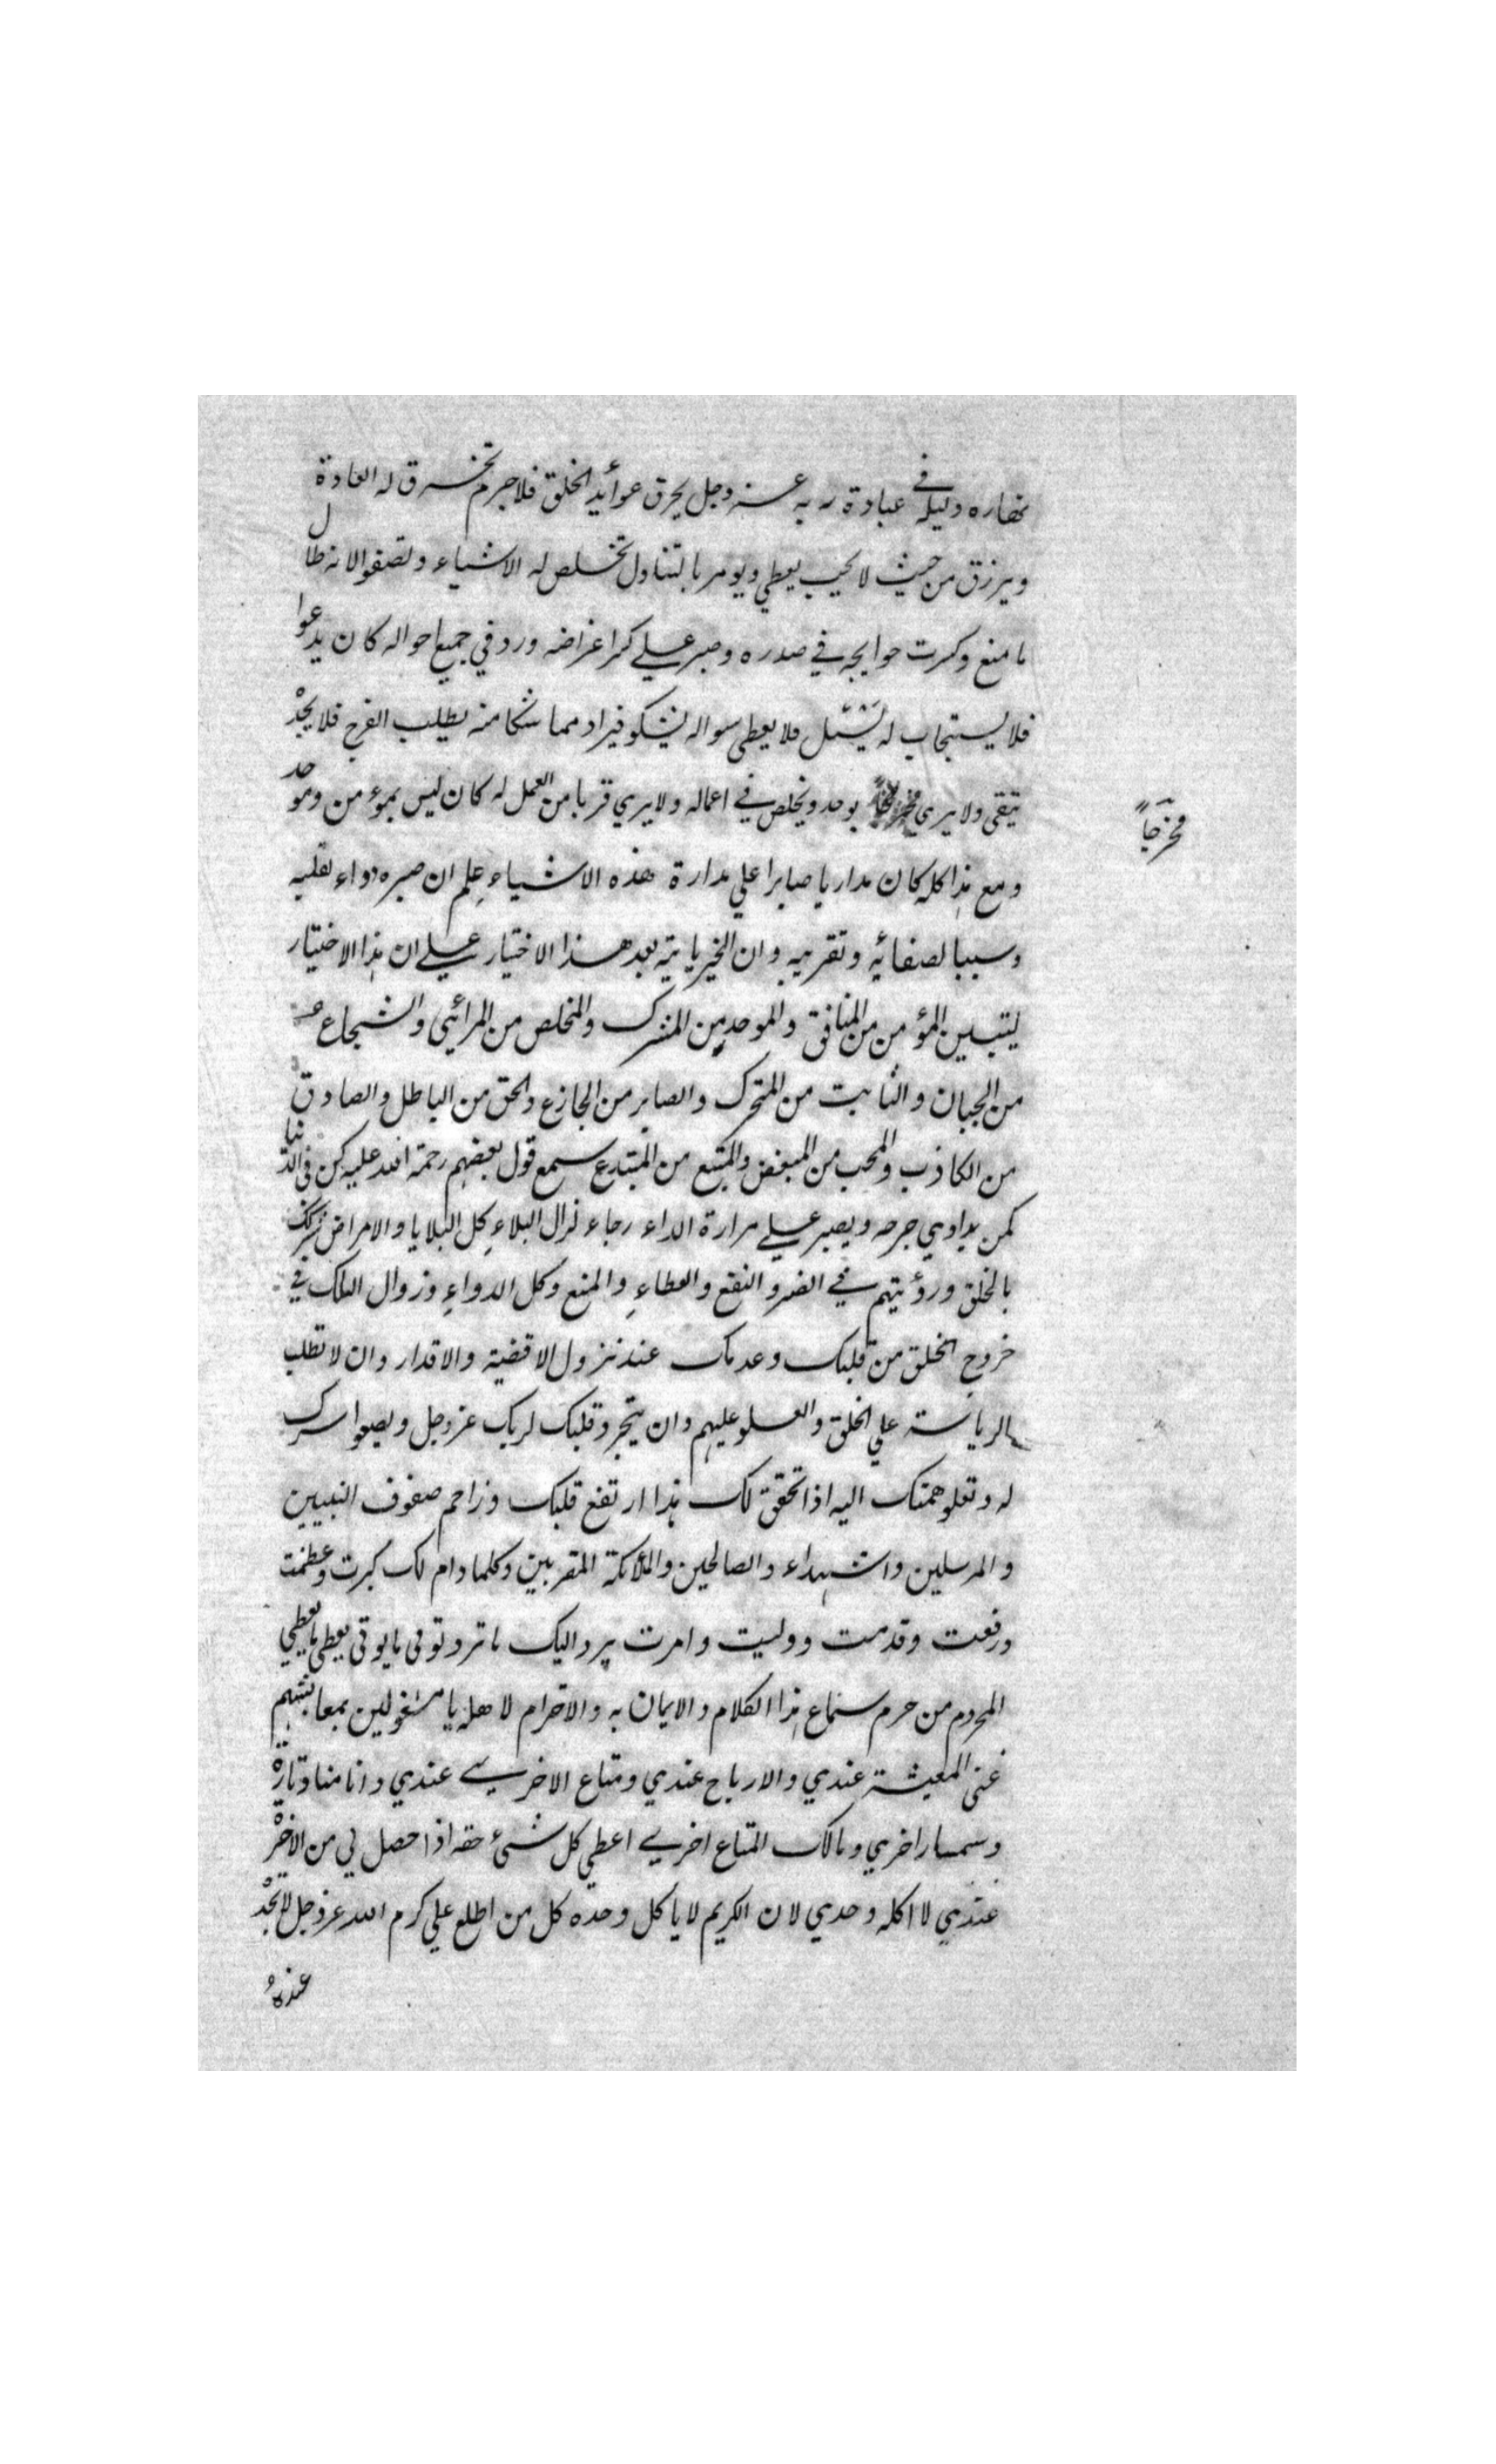 نهاره وليله في عبادة ربه عز وجل يحرق عوائد الخلق فلاجرم تخرق له العادة
ويرزق من حيث لا يحتسب يعطي ويومر بالتناول تخلص له الاشياء وتصفوا لانه طال
ما منع وكسرت حوايجه في صدره وصبر علي كسر اغراضه ورد في جميع احواله كان يدعوا
فلا يستجاب له يسئل فلا يعطي سواله يشكو فيزاد مما شكا منه يطلب الفرج فلا يجد
يتقي ولا يري يوحد ويخلص في اعماله ولا يري قربا من العمل له كان ليس بمؤمن وموحد
مخرجاً
ومع هذا كله كان مداريا صابرا علي مدارة هذه الاشياء علم ان صبره دواء لقلبه
وسببا لصفائه وتقريبه وان الخير ياتيه بعد هذا الاختيار علي ان هذا الاختيار
ليتبين المؤمن من المنافق والموحد من المشرك والمخلص من المرائي والشجاع
من الجبان والثابت من المتحرك والصابر من الجازع والحق من الباطل والصادق
من الكاذب والمحب من المبغض والمتبع من المبتدع سمع قول بعضهم رحمة الله عليه كن في الدنيا
كمن يداوي جرحه ويصبر علي مرارة الداء رجاء نزال البلاء كل البلايا والامراض شركك
بالخلق ورؤيتهم في الضر والنفع والعطاء والمنع وكل الدواء وزوال البلاء في
خروج الخلق من قلبك وعدمك عند نزول الاقضية والاقدار وان لا تطلب
الرياسة علي الخلق والعلو عليهم وان يتجرد قلبك لربك عز وجل ويصفوا سرك
له وتعلو همتك اليه اذا تحقق لك هذا ارتفع قلبك وزاحم صفوف النبيين
والمرسلين والشهداء والصالحين والملائكة المقربين وكلما دام لك كبرت وعظمت
ورفعت وقدمت ووليت وامرت يرد اليك ما ترد توتي ما يوتي يعطي ما يعطي
المحروم من حرم سماع هذا الكلام والايمان به والاحترام لاهله يا مشغولين بمعايشهم
عني المعيشة عندي والارباح عندي ومتاع الاخري عندي وانا مناد وتارة
وسمسار اخري ومالك المتاع اخري اعطي كل شيء حقه اذا حصل لي من الاخرة
عندي لا اكله وحدي لان الكريم لا ياكل وحده كل من اطلع علي كرم الله عز وجل لا يجد
عنده